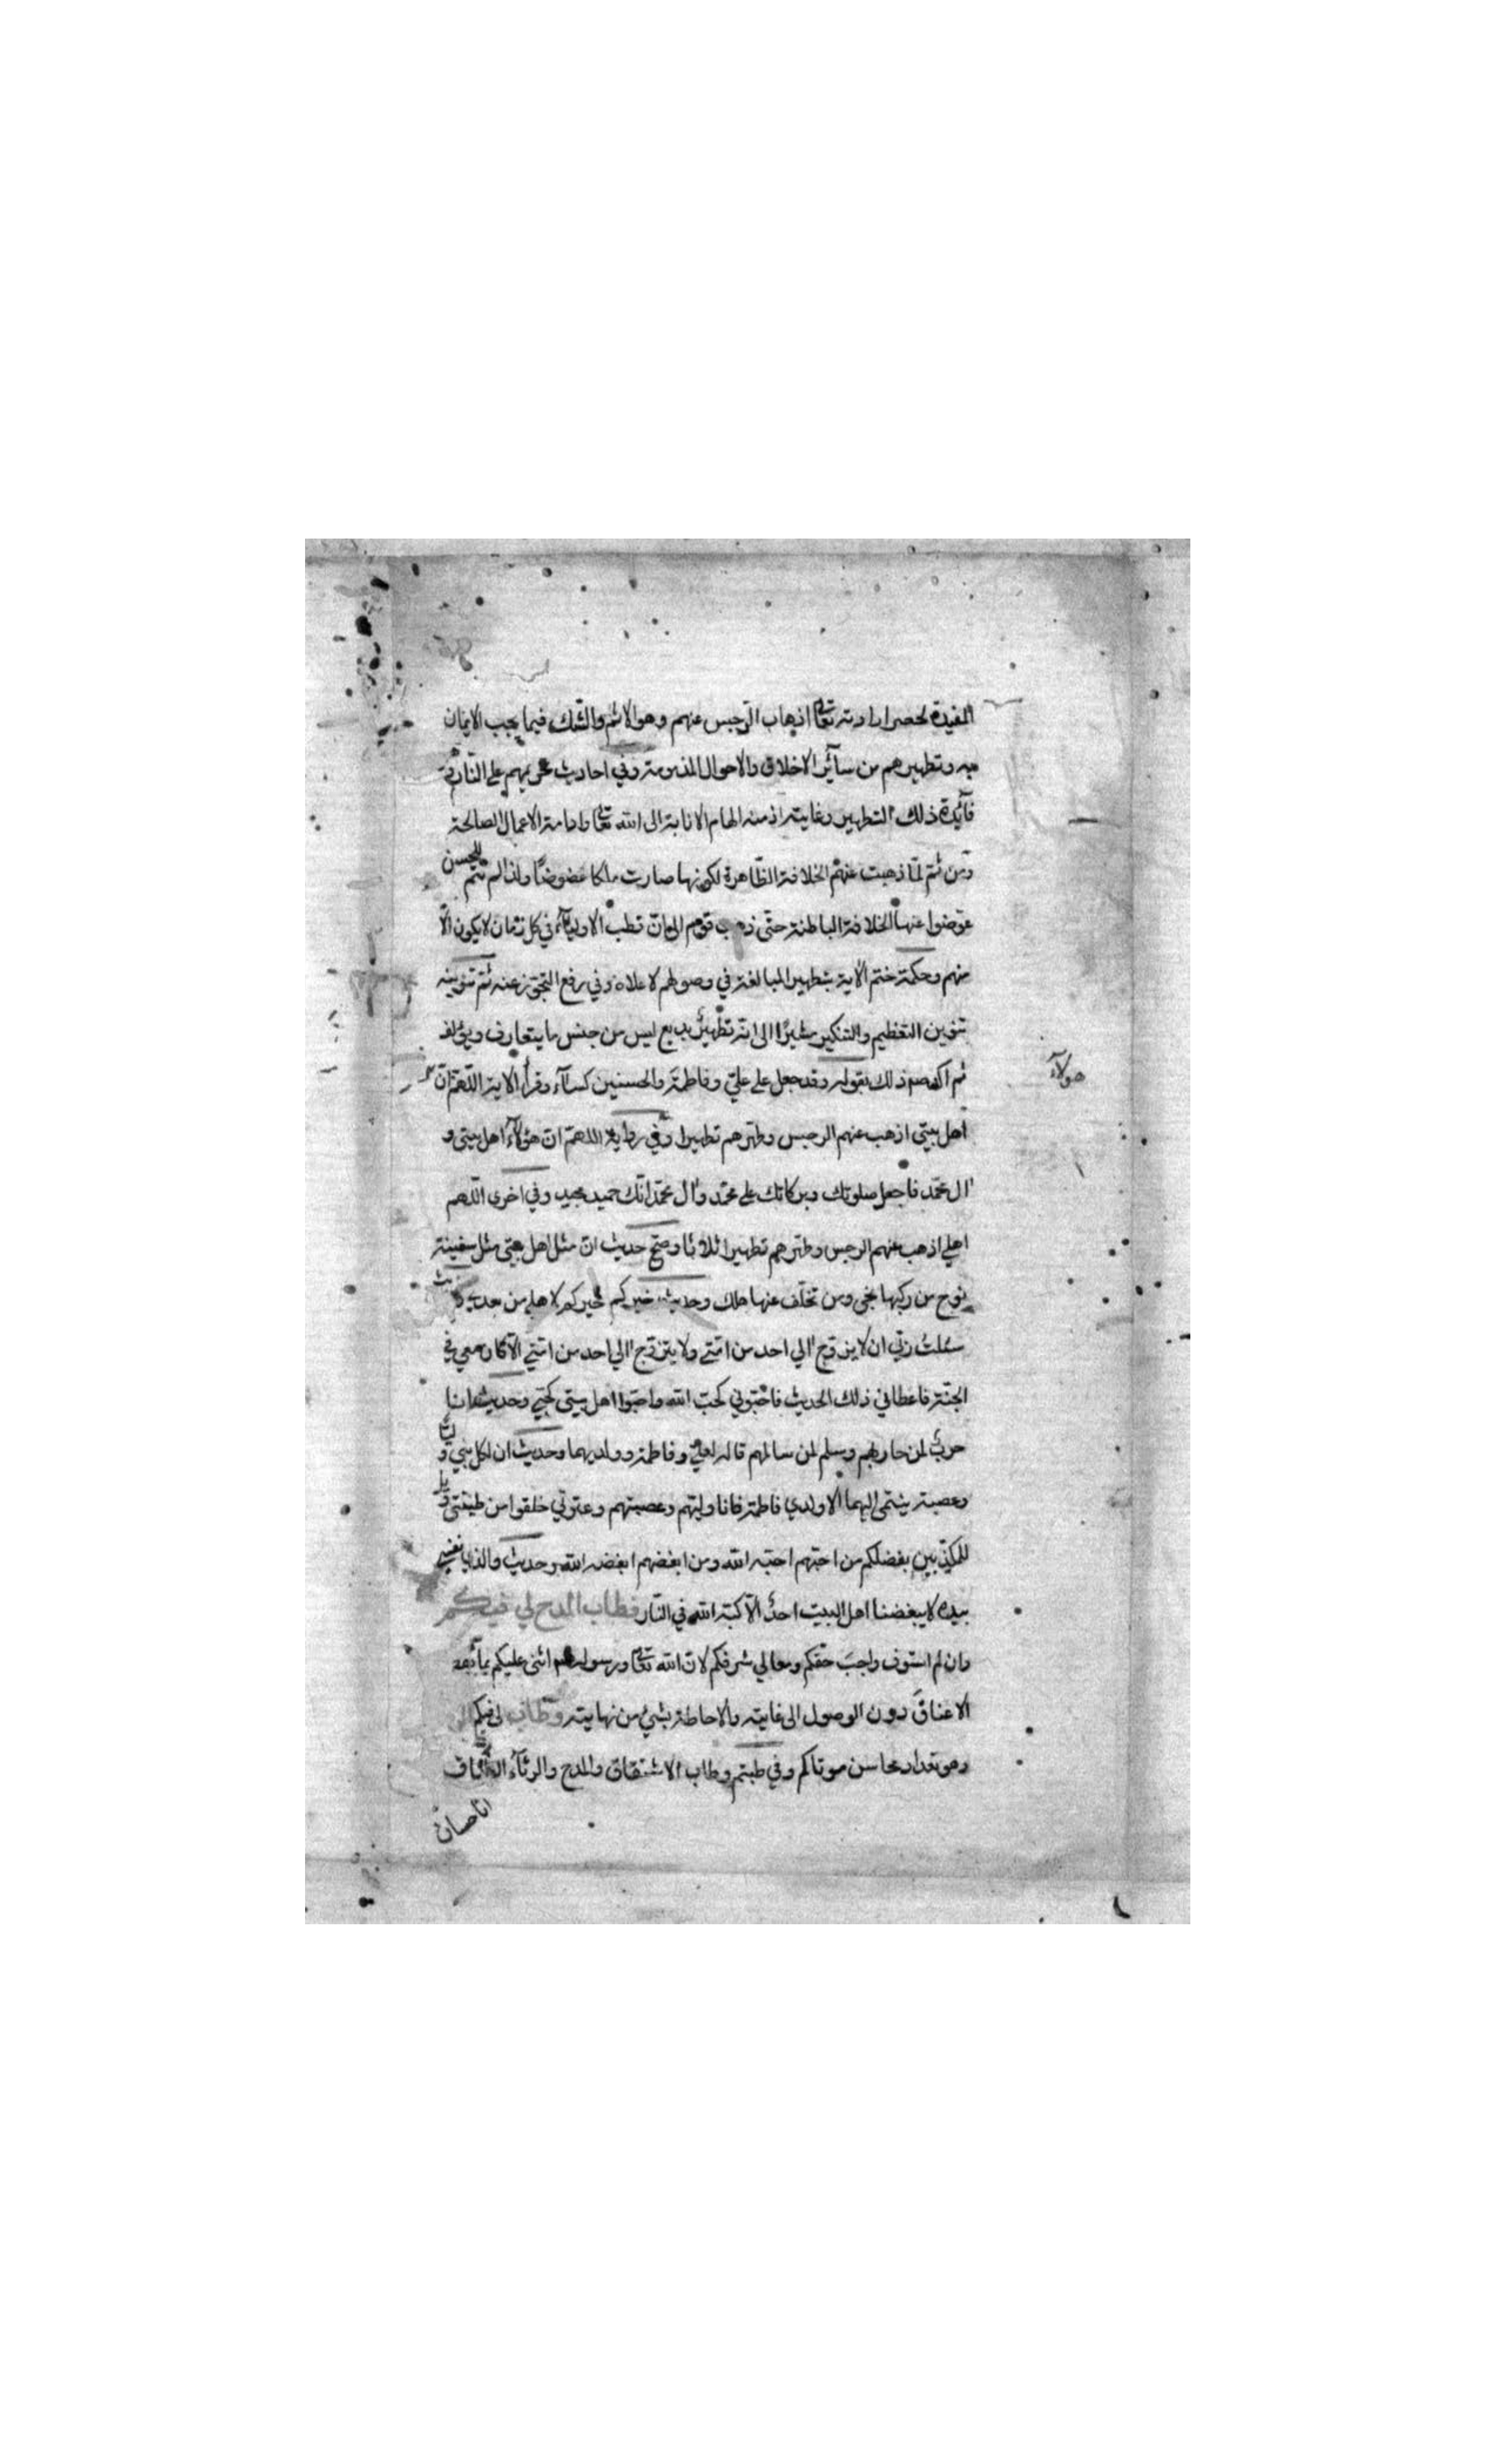 المفيدة لحصر ارادته تعالى اذهاب الرجس عنهم وهو الاثم والشك فيما يجب الايمان
به وتطهيرهم من سآئر الاخلاق والاحوال المذمومة وفي احاديث تحريمهم على النار وهي
فآئدة ذلك التطهير وغايته اذ منه الهام الانابة الى الله تعالى وادامة الاعمال الصالحة
ومن ثم لمّا ذهبت عنهم الخلافة الظّاهرة لكونها صارت ملكا عضوضًا ولذا لم تتم للحسن
عوّضوا عنها الخلافة الباطنة حتّى ذهب قوم الى انّ قطب الاوليآء في كل زمان لا يكون الّا
منهم وحكمة ختم الآية بتطهيرا المبالغة في وصولهم لاعلاه وفي رفع التجوّز عنه ثم تنوينه
تنوين التعظيم والتنكير مشيرًا الى انّه تطهيرٌ بديع ليس من جنس ما يتعارف ويؤلف
ثم اكد صم ذلك بقوله وقد جعل على عليّ وفاطمة والحسنين كسآء وقرأ الآية اللّهمّ انّ
هولآء
اهل بيتي اذهب عنهم الرجس وطهّرهم تطهيرا وفي رواية اللهمّ انّ هؤلآء اهل بيتي و
آل محمّد فاجعل صلوتك وبركاتك على محمّد وآل محمّد انّك حميد مجيد وفي اخرى اللّهم
اهلي اذهب عنهم الرجس وطهّرهم تطهيرا ثلاثا وصحّ حديث انّ مثل اهل بيتي مثل سفينة
نوح من ركبها نجى ومن تخلّف عنها هلك وحديث خيركم خيركم لاهلي من بعدي
سئلتُ ربّي ان لا يزوّج اليّ احد من امّتي ولا يتزوّج اليّ احد من امّتي الّا كان معي في
الجنّة فاعطاني ذلك الحديث فاحبّوني لحبّ الله واحبّوا اهل بيتي لحبّي وحديث انا
حربٌ لمن حاربهم وسلم لمن سالمهم قاله لعليّ وفاطمة وولديهما وحديث ان لكل بني
وعصبة ينتمي اليها الا ولدي فاطمة فانا وليّهم وعصبتهم وعترتي خلقوا من طينتي ويل
للمكذّبين بفضلكم من احبّهم احبّه الله ومن ابغضهم ابغضه الله وحديث والذي نفسي
بيده لا يبغضنا اهل البيت احدٌ الّا كبّه الله في النّار فطاب المدح لي فيكم
وان لم استوف واجبَ حقّكم ومعالي شرفكم لانّ الله تعالى ورسوله صم اثنى عليكم بما
الاعناقَ دون الوصول الى غايته والاحاطة بشيء من نهايته وطاب لي فيكم
وهو تعداد محاسن موتاكم وفي طبتم وطاب الاشتقاق والمدح والرثآء